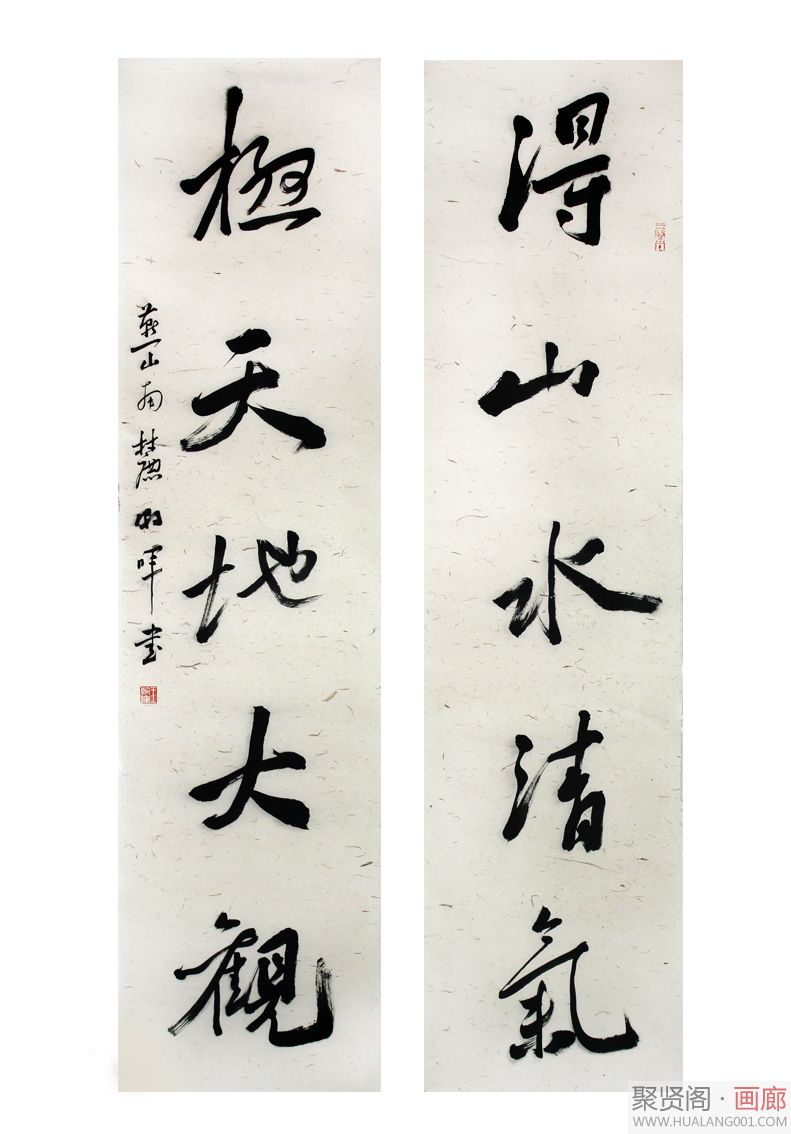 得山水清氣
極天地大觀
燕山南麓 明暉書
聚贤阁·画廊
WWW.HUALANG001.COM